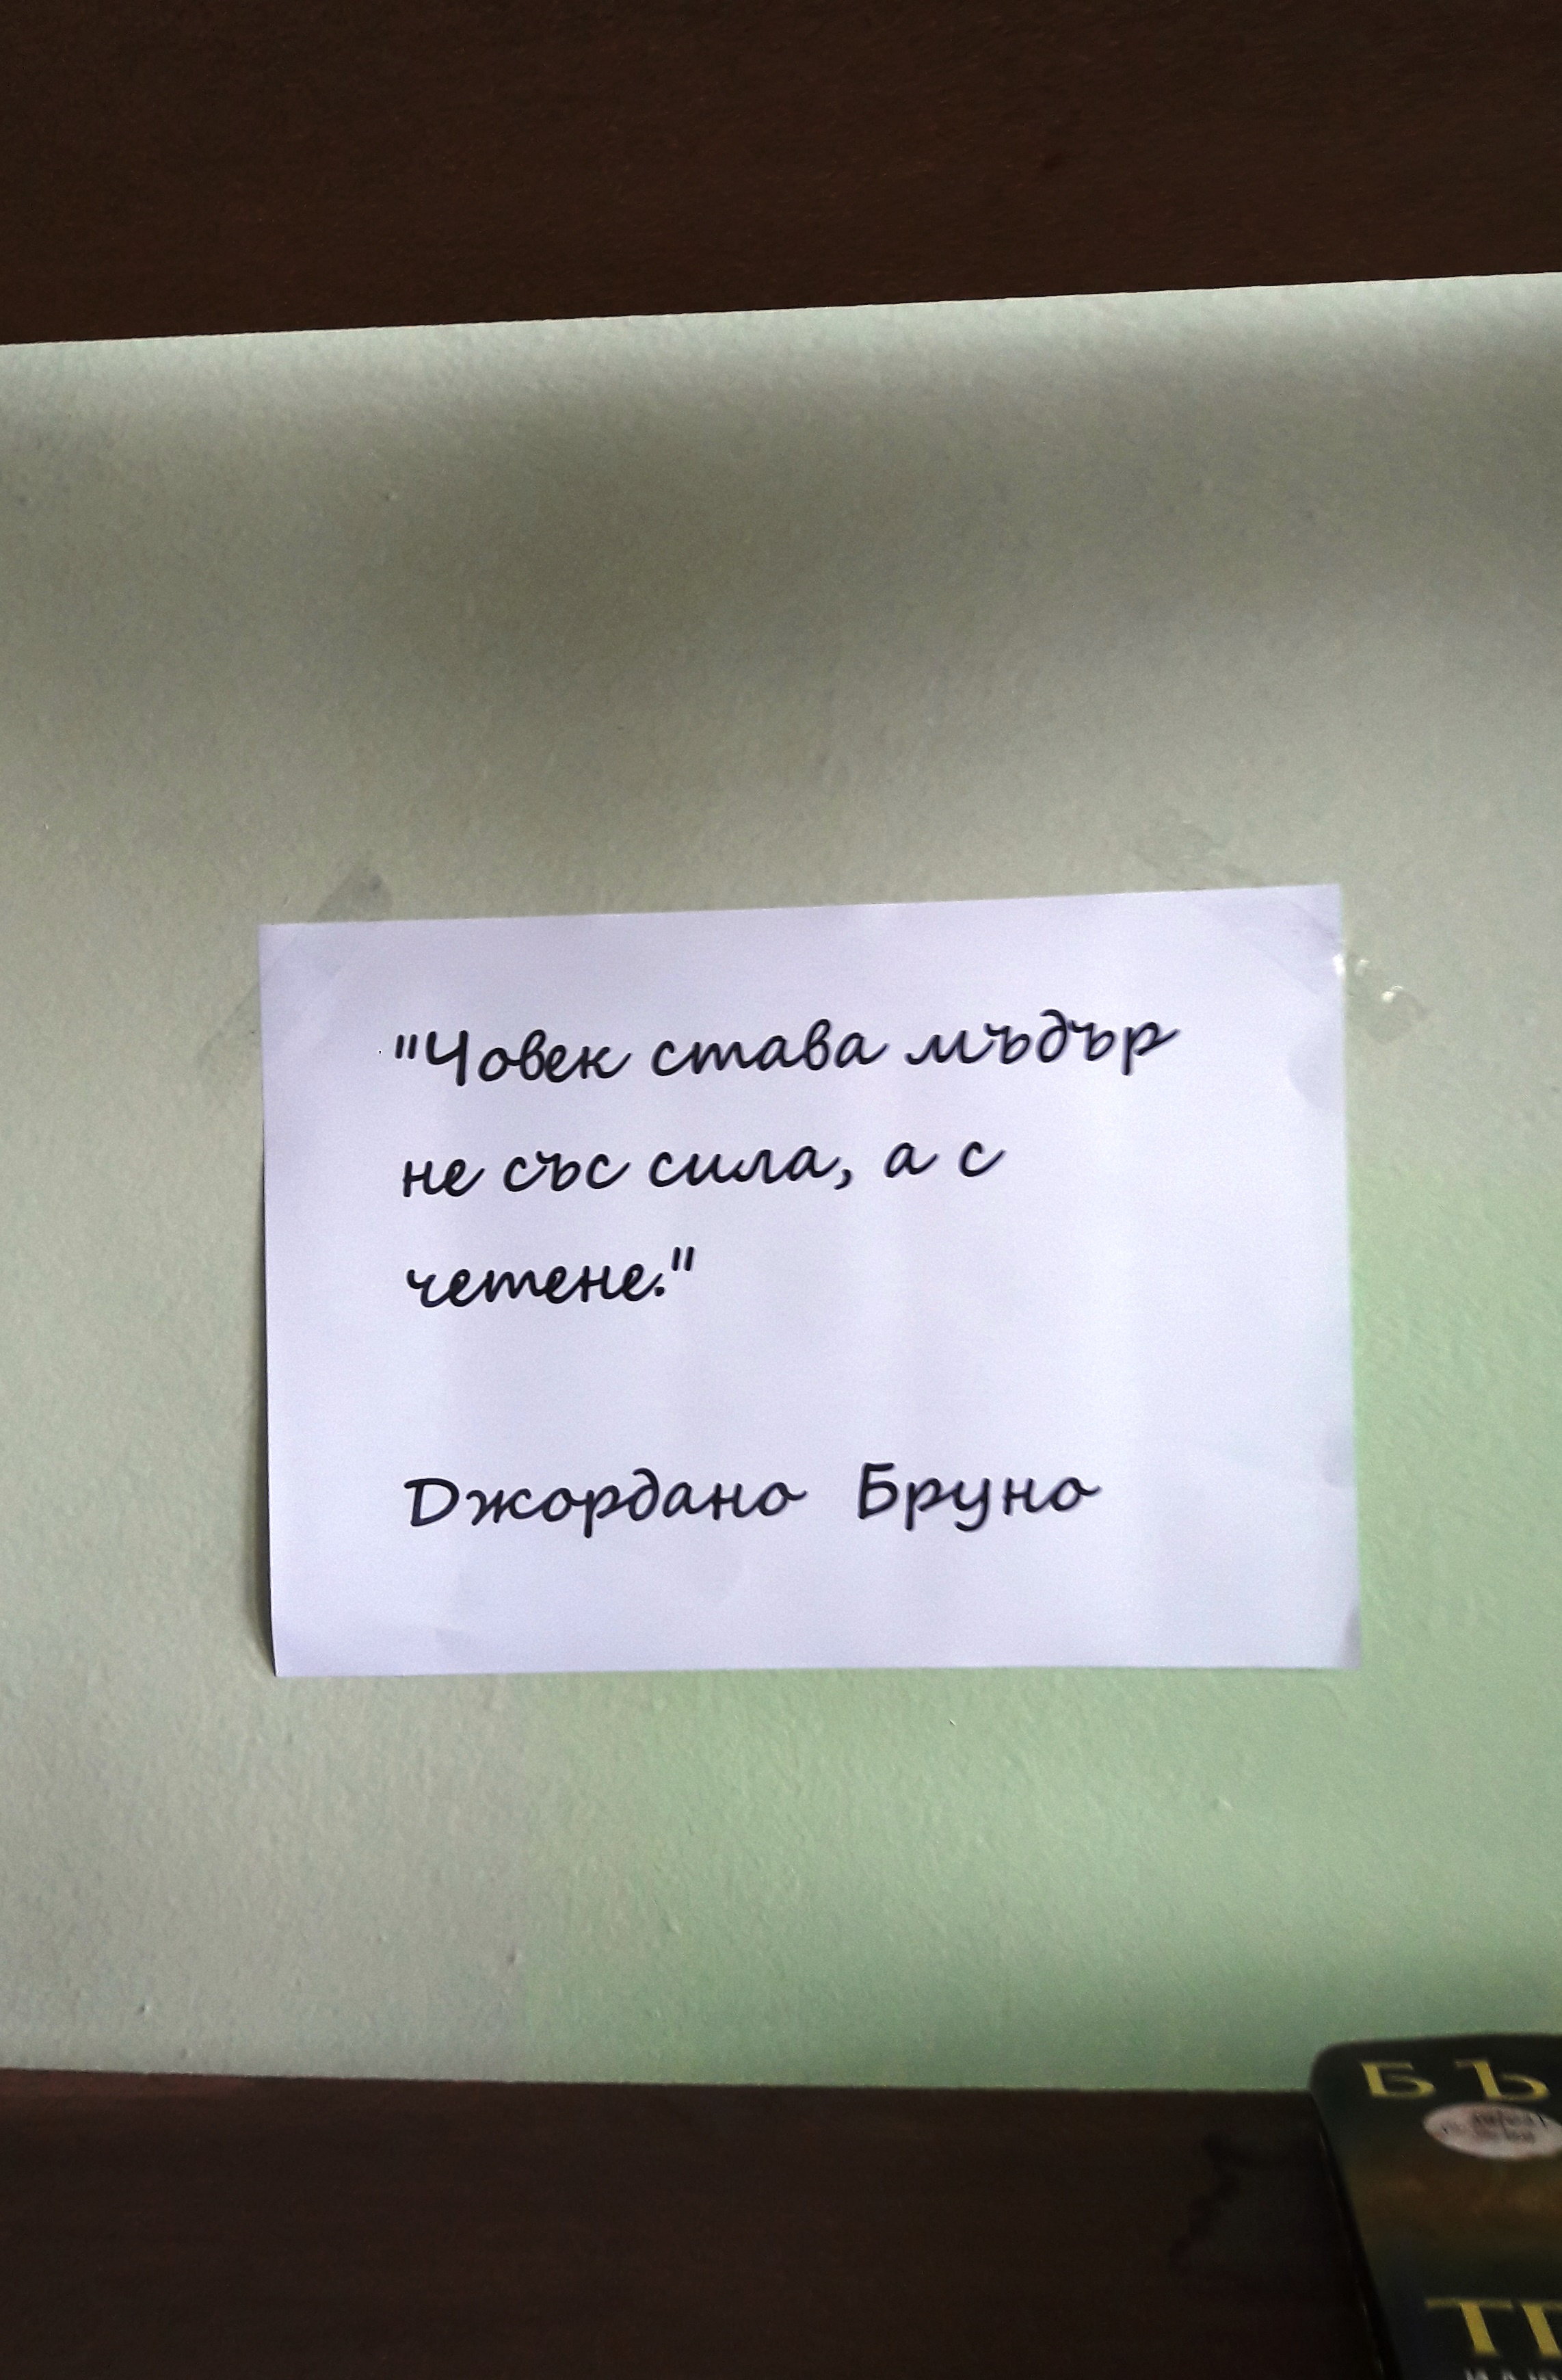 "Човек става мъдър
не със сила, а с
четене."
Джордано Бруно
БЪ